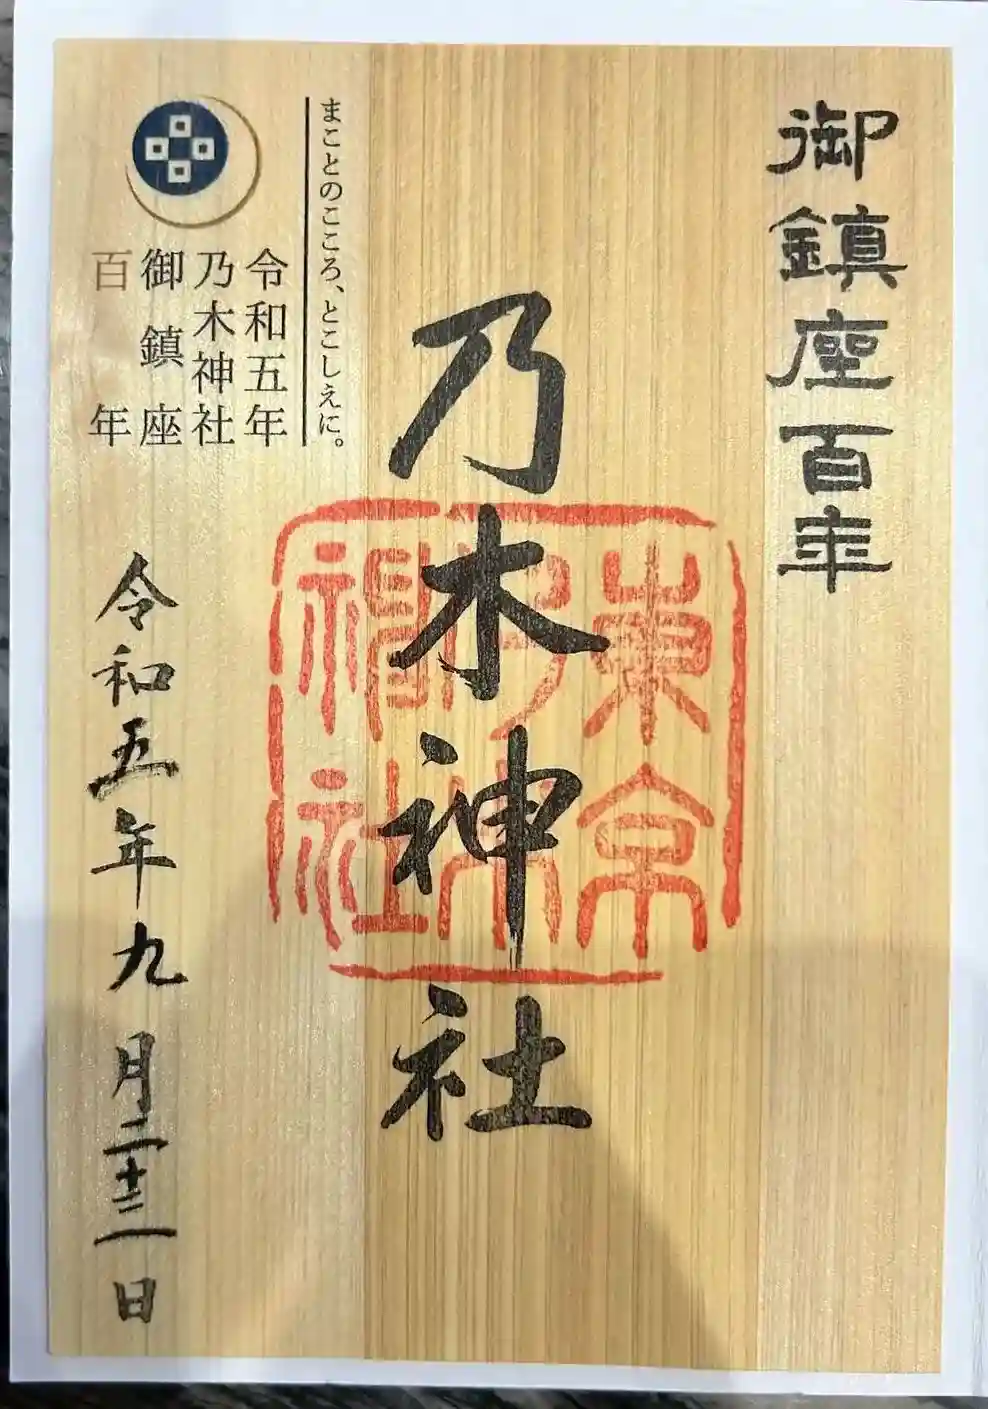 御鎮座百年
東京
乃木
神社
乃木神社
まことのこころ、とこしえに。
令和五年
乃木神社
御鎮座
百年
令和五年九月二十三日